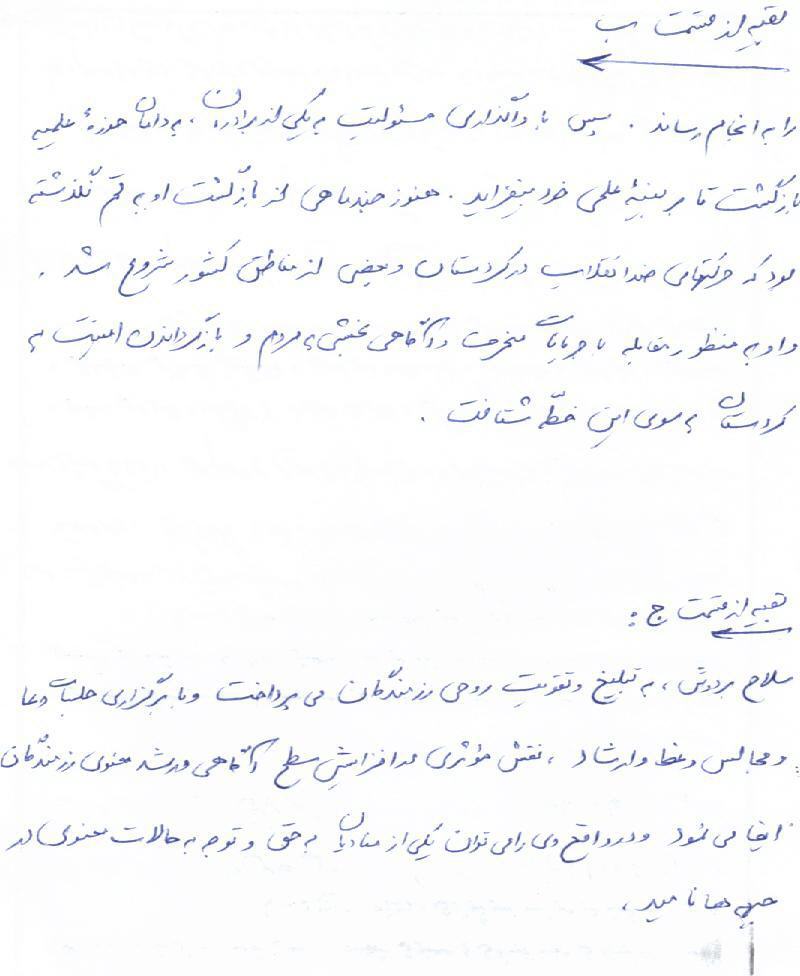 بقیه از قسمت ب
را به انجام رساند. سپس با واگذاری مسئولیت به یکی از برادران، به دامان حوزهٔ علمیه
بازگشت تا بر بنیهٔ علمی خود بیفزاید. هنوز چندماهی از بازگشت او به قم نگذشته
بود که حرکتهای ضدانقلاب در کردستان و بعضی از مناطق کشور شروع شد.
و او به منظور مقابله با جریانات منحرف و آگاهی بخشی به مردم و بازگرداندن امنیت به
کردستان به سوی این خطّه شتافت.
بقیه از قسمت ج:
سلاح بردوش، به تبلیغ و تقویت روحی رزمندگان می پرداخت و با برگزاری جلسات دعا
و مجالس وعظ و ارشاد، نقش مؤثری در افزایش سطح آگاهی و رشد معنوی رزمندگان
ایفا می نمود و در واقع وی را می توان یکی از منادیان به حق و توجه به حالات معنوی در
جبهه ها نامید.